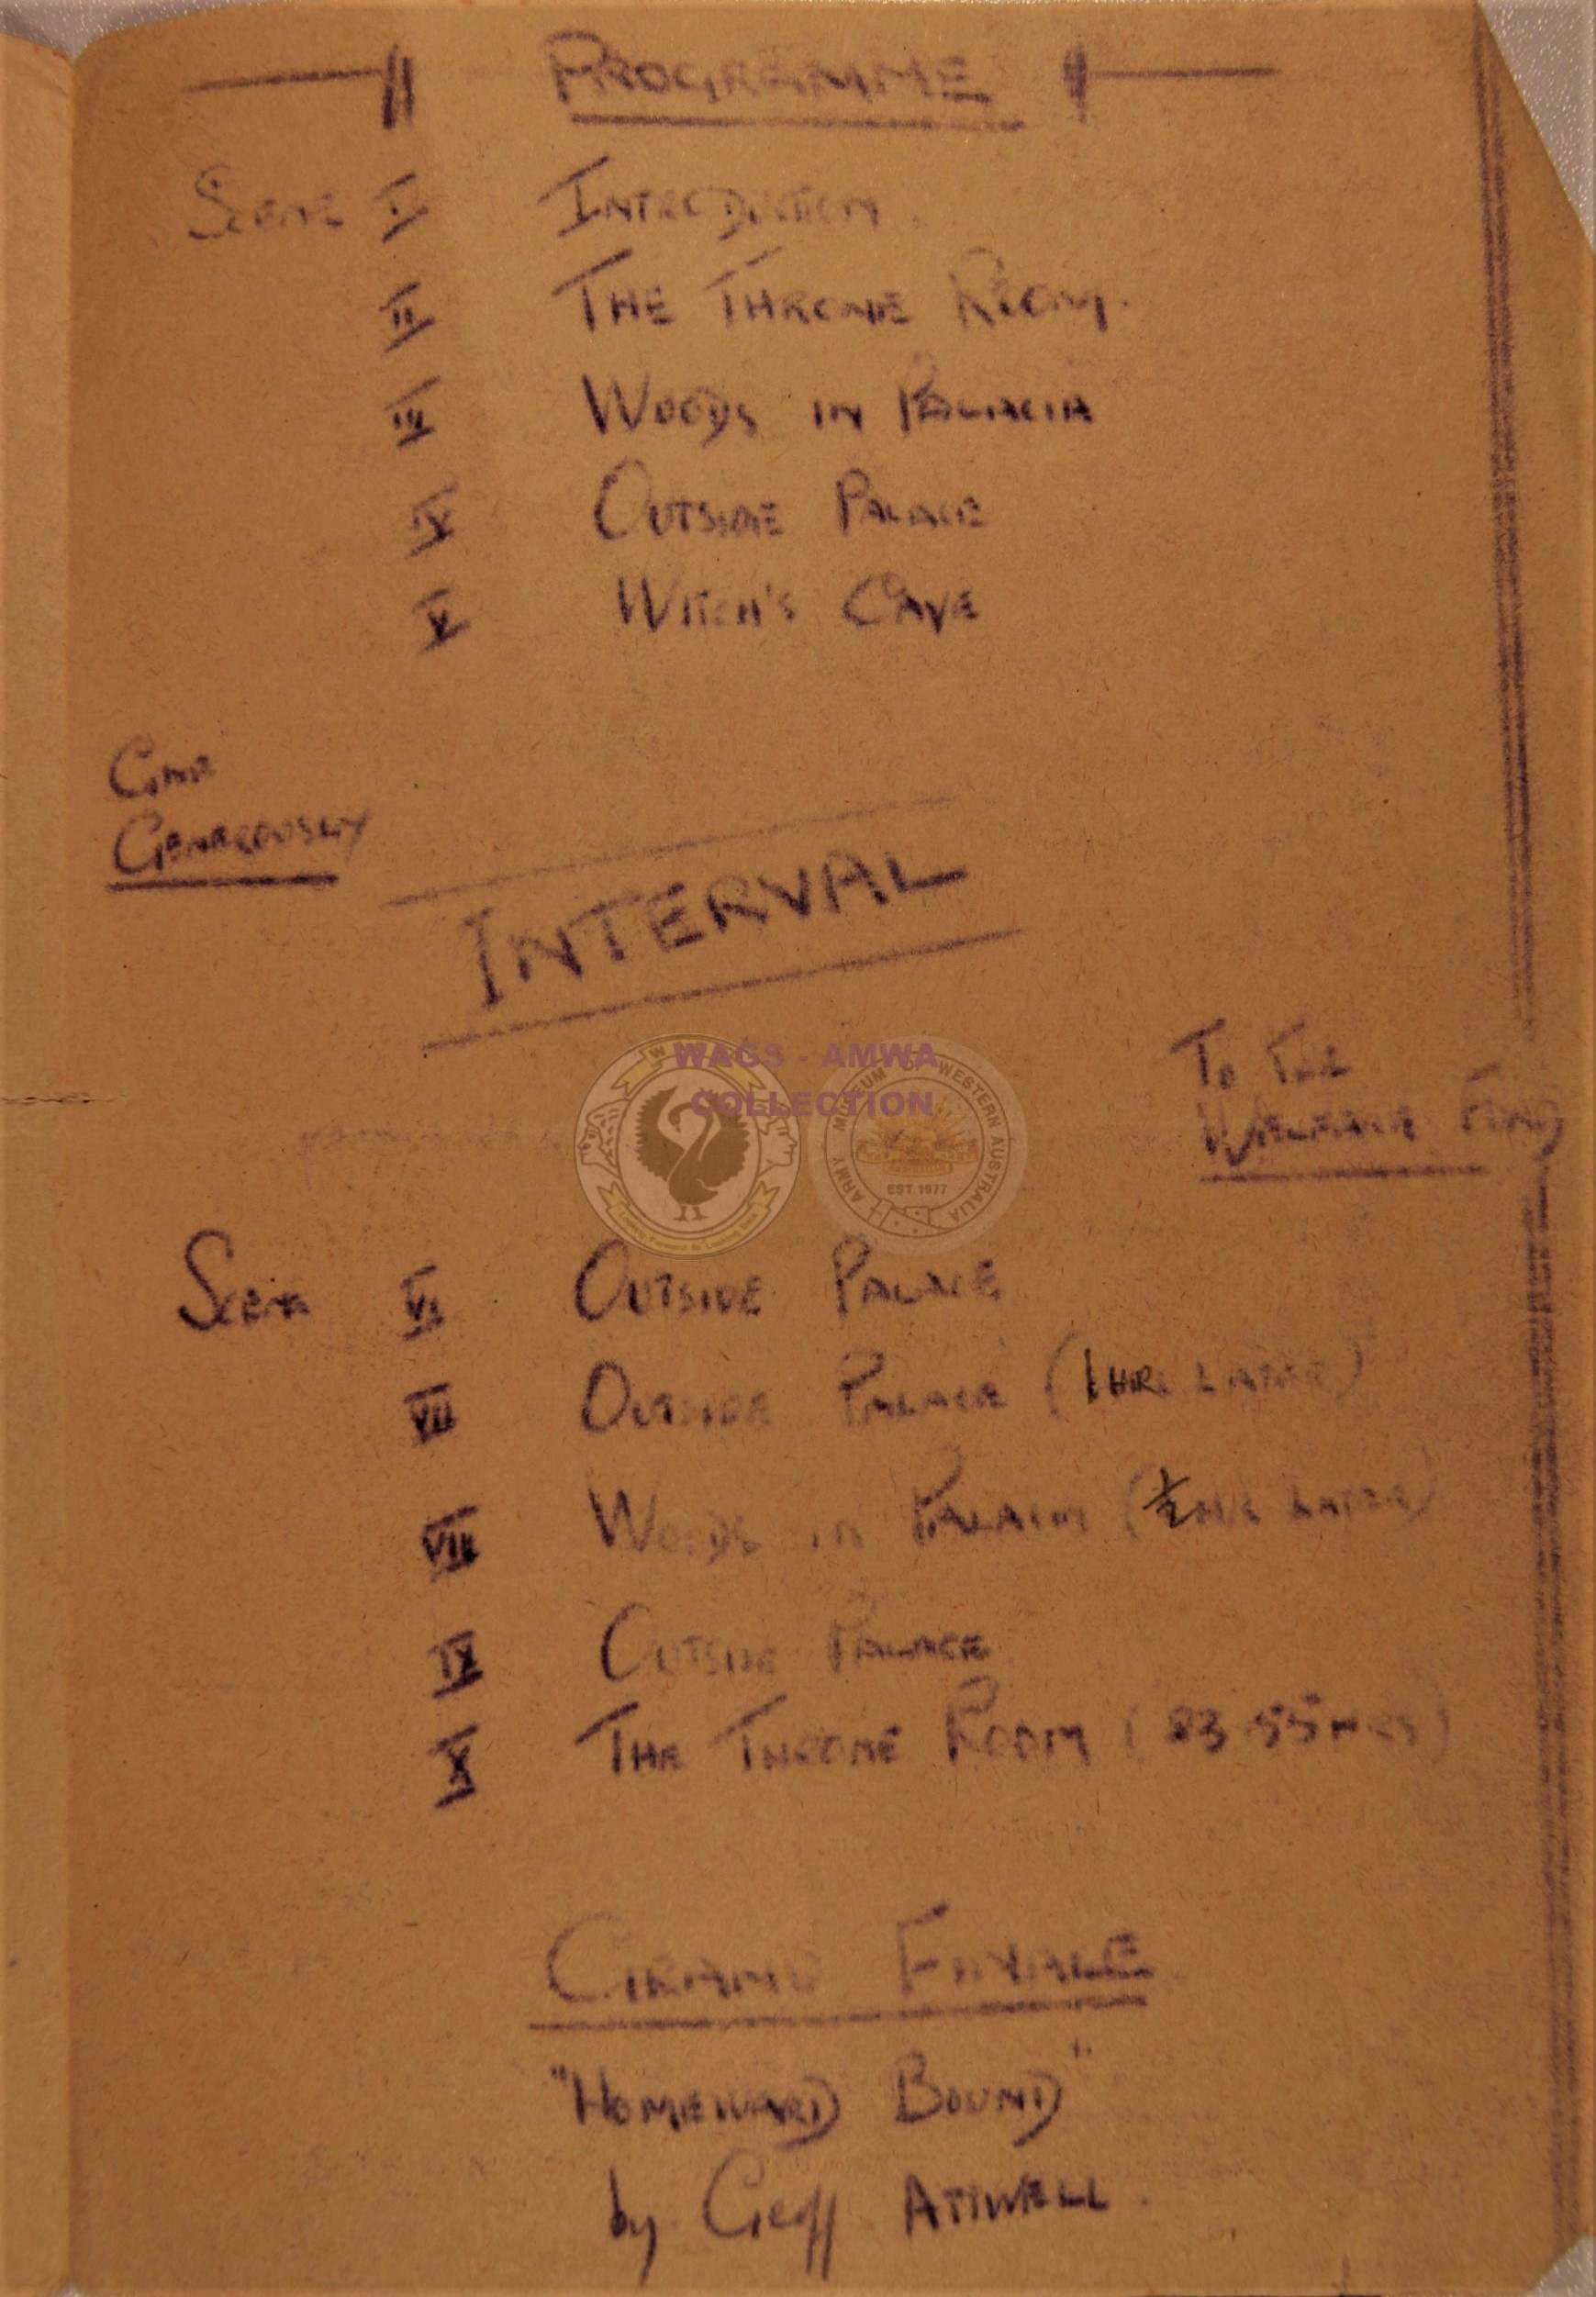 PROGRAMME
SCENE I INTRODUCTION.
II THE THRONE ROOM.
III WOODS IN PALACIA
IV OUTSIDE PALACE
V WITCH'S CAVE
GIVE
GENEROUSLY
INTERVAL
TO THE
WELFARE FUND
WAGS - AMWA
COLLECTION
ARMY MUSEUM OF WESTERN AUSTRALIA
EST 1977
SCENE VI OUTSIDE PALACE
VII OUTSIDE PALACE (1 HR LATER)
VIII WOODS IN (½ HR LATER)
IX OUTSIDE PALACE
X THE THRONE ROOM (23.55 HRS)
GRAND FINALE
"HOMEWARD BOUND"
by Geoff ATTWELL.